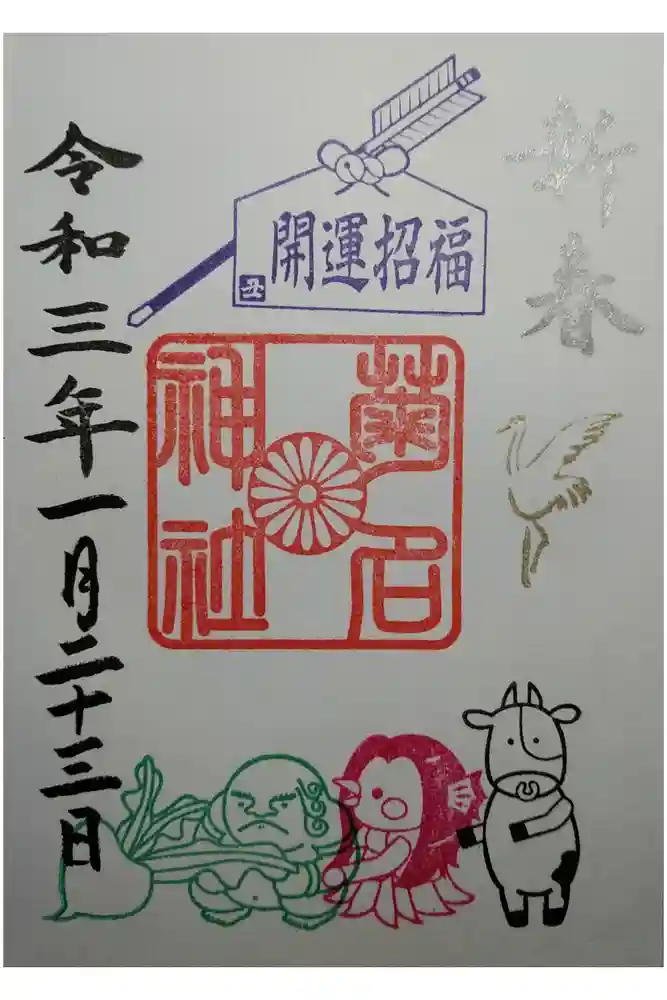 新春
開運招福
丑
菊名
神社
令和三年一月二十三日